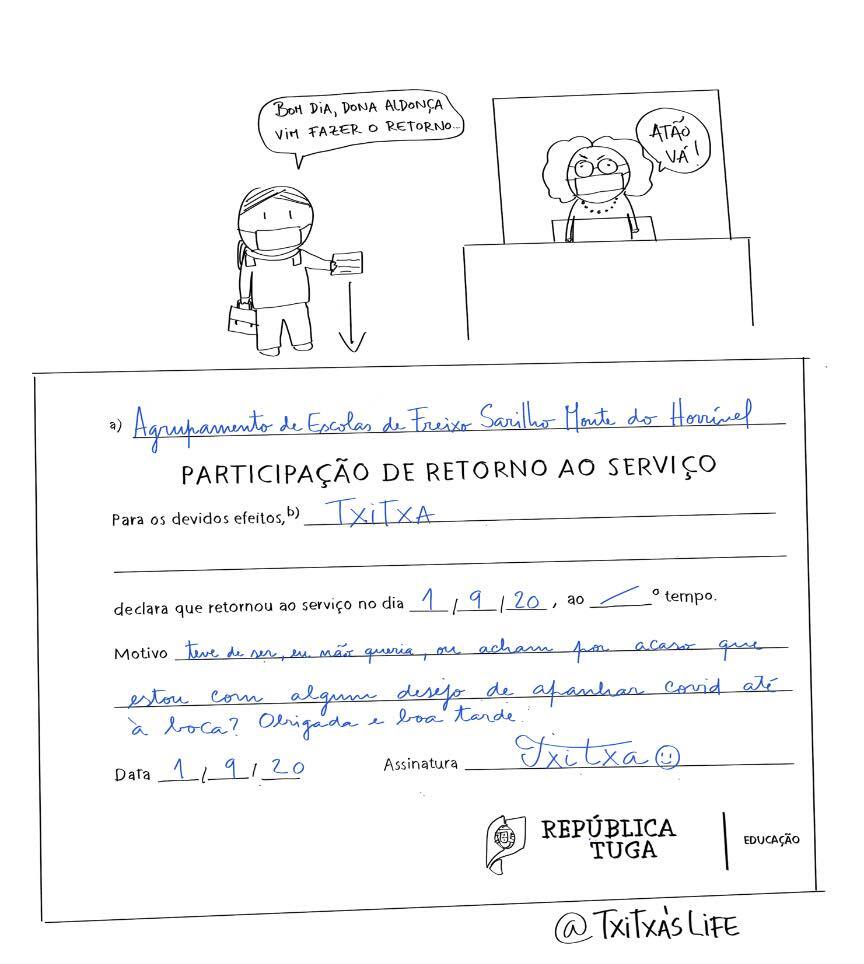 BOM DIA, DONA ALDONÇA
VIM FAZER O RETORNO...
ATÃO
VÁ!
a) Agrupamento de Escolas de Freixo Sarilho Monte do Horrível
PARTICIPAÇÃO DE RETORNO AO SERVIÇO
Para os devidos efeitos, b) TXiTXA
declara que retornou ao serviço no dia 1 / 9 / 20, ao / º tempo.
Motivo teve de ser, eu não queria, ou acham por acaso que
estou com algum desejo de apanhar covid até
à boca? Obrigada e boa tarde.
Data 1 / 9 / 20 Assinatura Txitxa ☺
REPÚBLICA
TUGA
EDUCAÇÃO
@TXiTXA'S LiFE